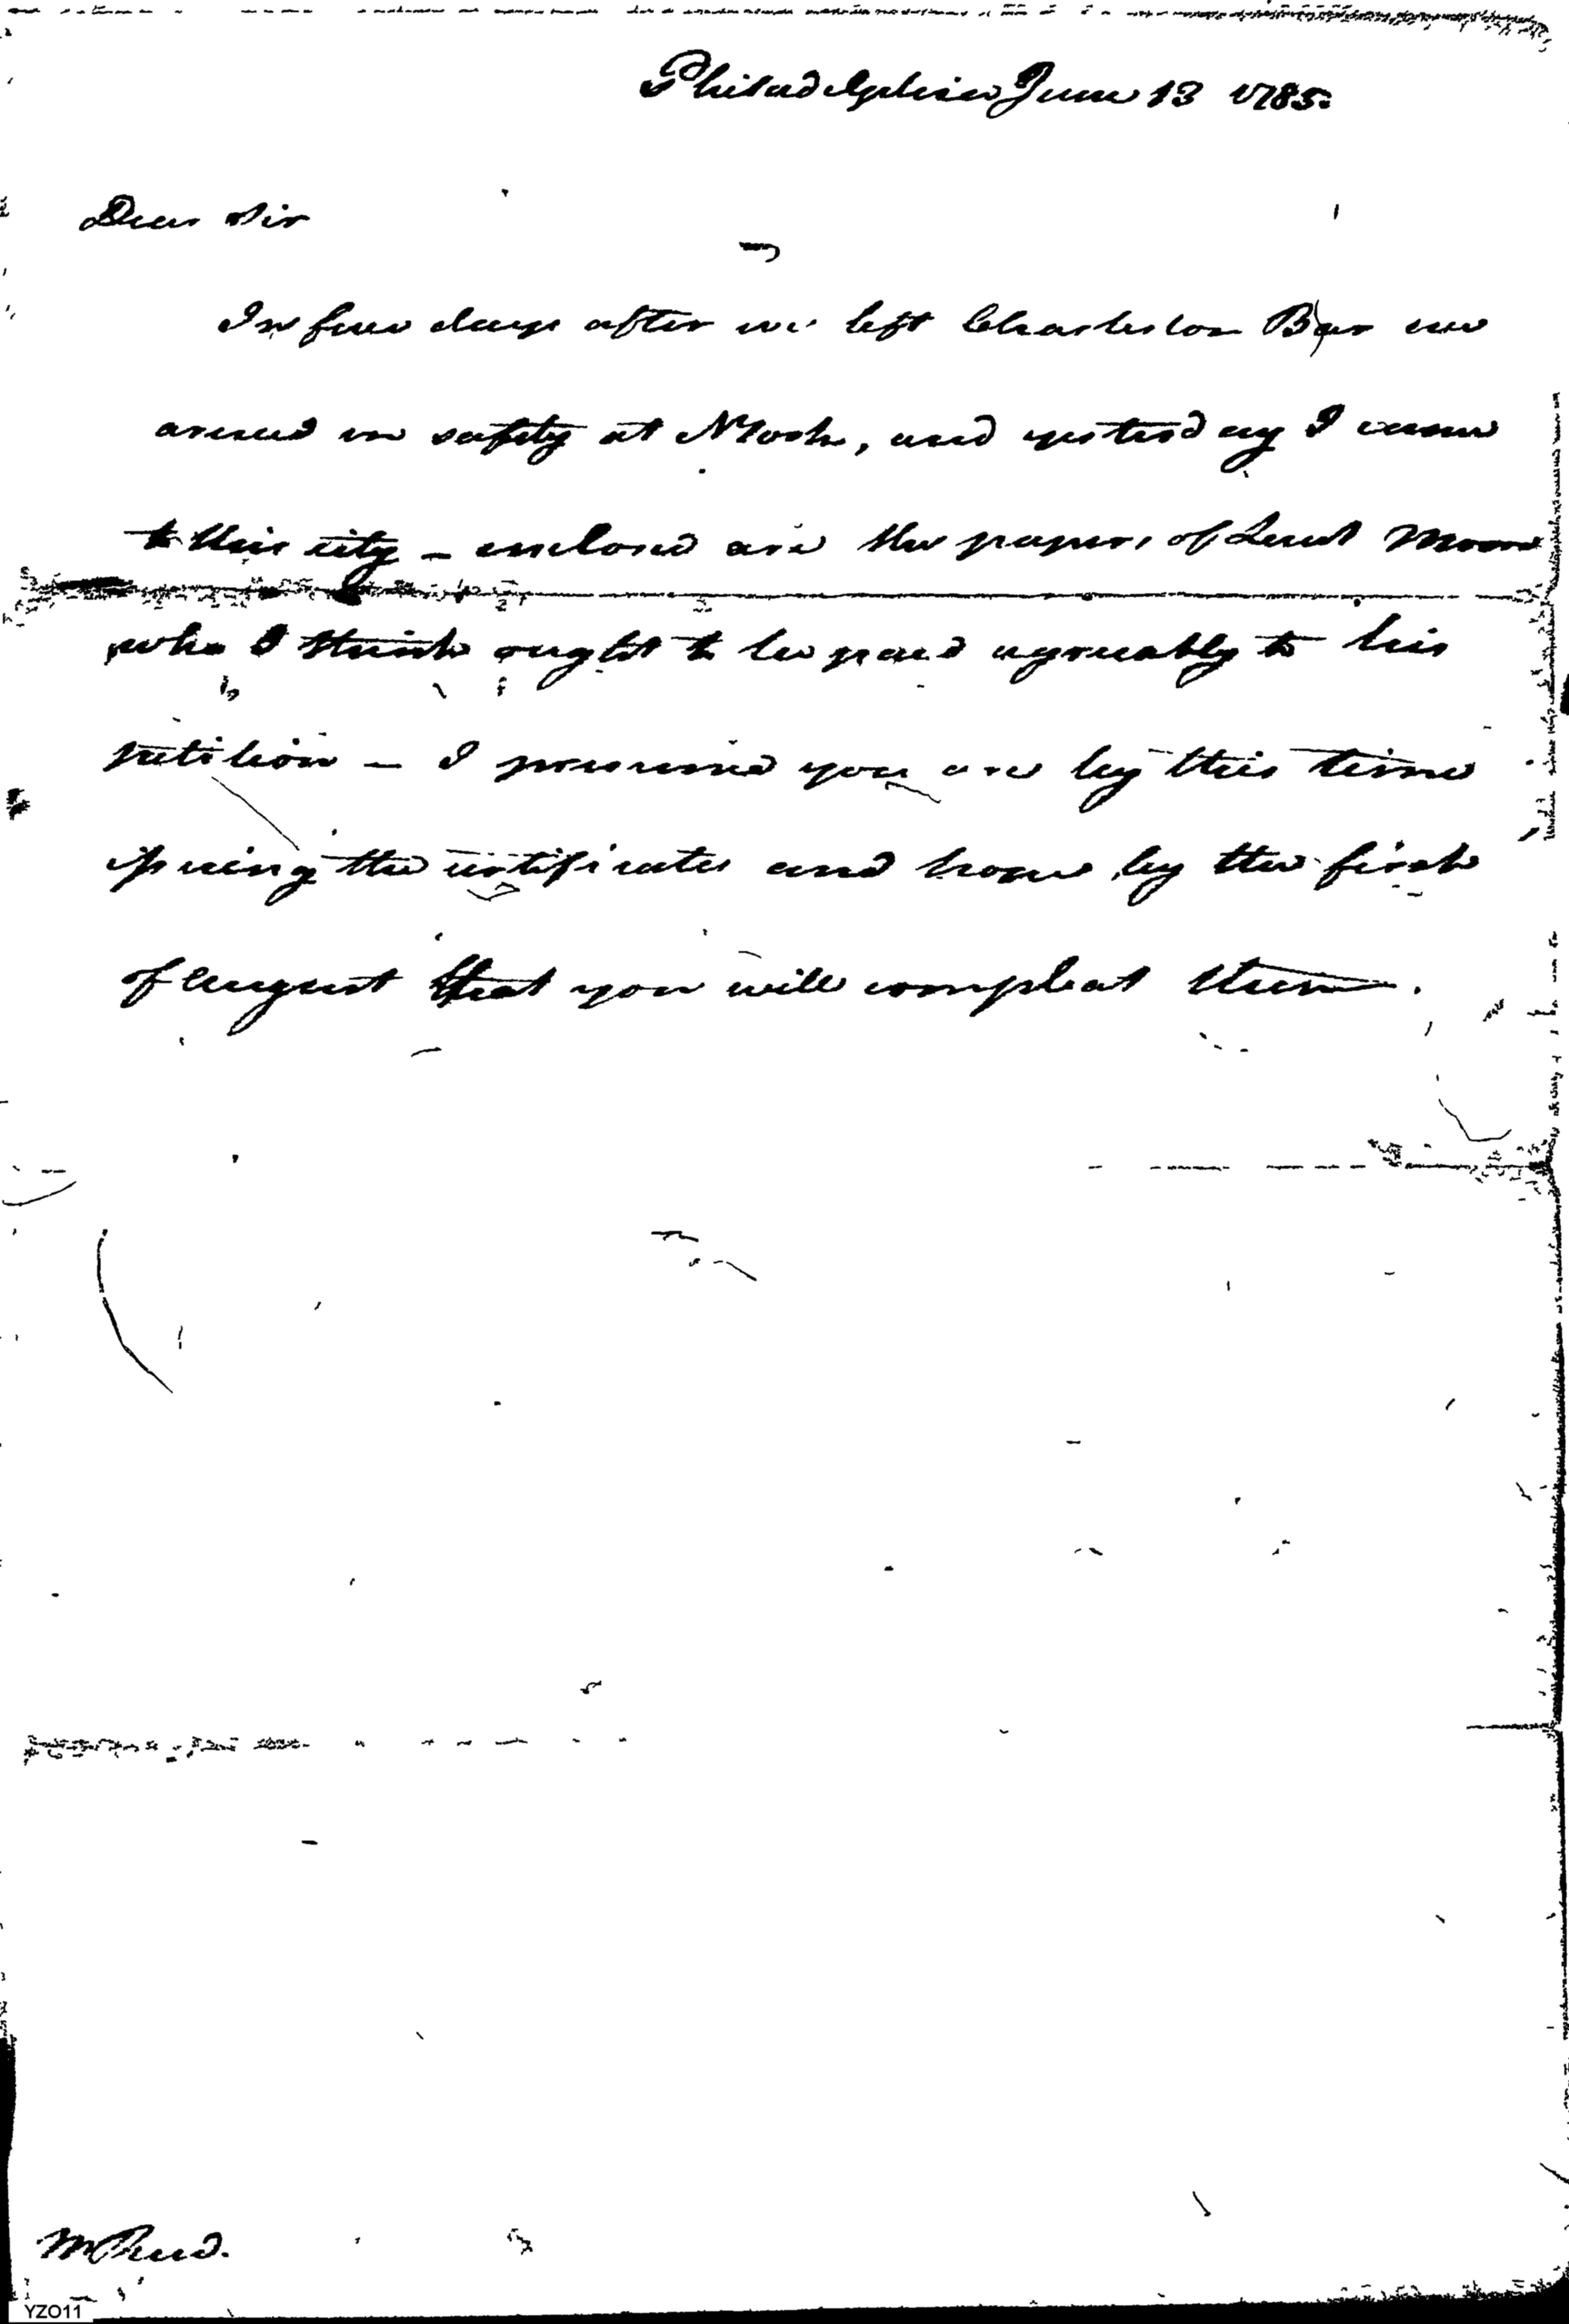 Philadelphia June 13 1785.
Dear Sir
In few days after we left Charleston Bar we
arived in safety at NYork, and yesterday I came
to this city – enclosed are the papers of Lieut Moore
who I think ought to be paid agreeably to his
petition – I presume you are by this time
issuing the certificates and hope by the first
of August that you will compleat them.
Mr Reed.
YZO11